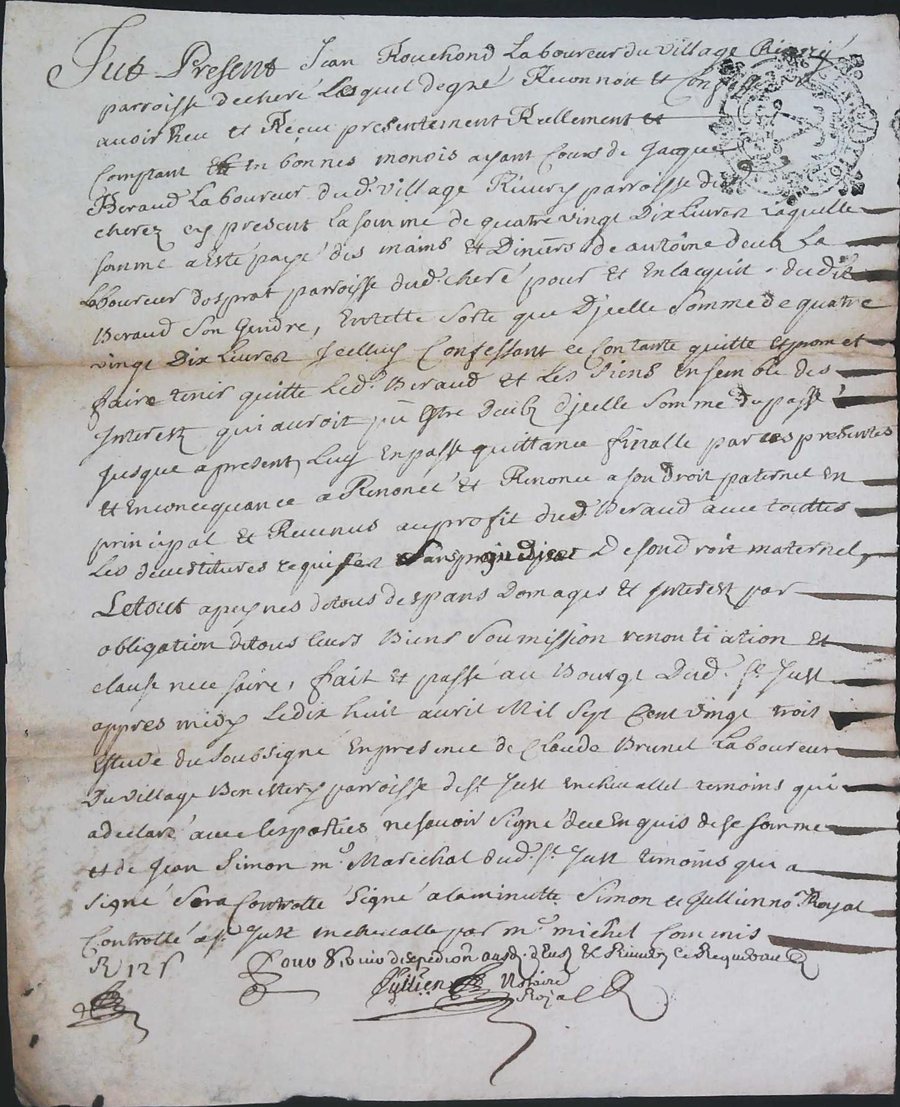 Fut Present Jean Rouchond Laboureur du village
parroisse de cheré Lesquel de gré Reconnoit et
avoir heu et Receu presentement Réellement et
Comptant Et en bonnes monois ayant Cours de Jacque
Beraud Laboureur dud. village parroisse de
cherez present la somme de quatre vingt Dix Livres Laquelle
somme a Esté payé des mains Et Deniers de antoine La
Laboureur dosprat parroisse dud. cheré pour Et En lacquit du dit
Beraud Son Gendre, En cette Sorte que Dycelle Somme de quatre
vingt Dix Livres Confessant et quitte Et promet
faire tenir quitte Led. Beraud Et Les Siens Ensemble des
Interest qui auroit pu Estre Dicelle Somme du passé
Jusque a present, Luy En passe quittance finalle par ces presentes
Et En concequance a Renoncé Et Renonce a son Droit paternel En
principal Et Revenus au profit dud. Beraud avec touttes
Les devestitures requises Sans prejudice De son droit maternel,
Le tout a peynes de tous despans Domages Et Interest par
obligation de tous leurs Biens Soumission renontiation Et
clause necesaire, fait Et passé au Bourg Dud. St Just
appres midy Le dix huit avril Mil Sept Cent vingt trois
Estude du Soubsigné En presence de Claude Brunel Laboureur
Du village parroisse de St Just en chevallet temoins qui
a declaré avec les parties ne savoir Signé de ce Enquis de se somme
et de Jean Simon me Marechal dud. St Just temoins qui a
Signé Sera Controllé Signé a la minutte Simon et Jullien no Royal
Controllé a St Just en chevalle par me michel Commis
R 12 s
Pour au Requerant
Jullien Notaire
Royal